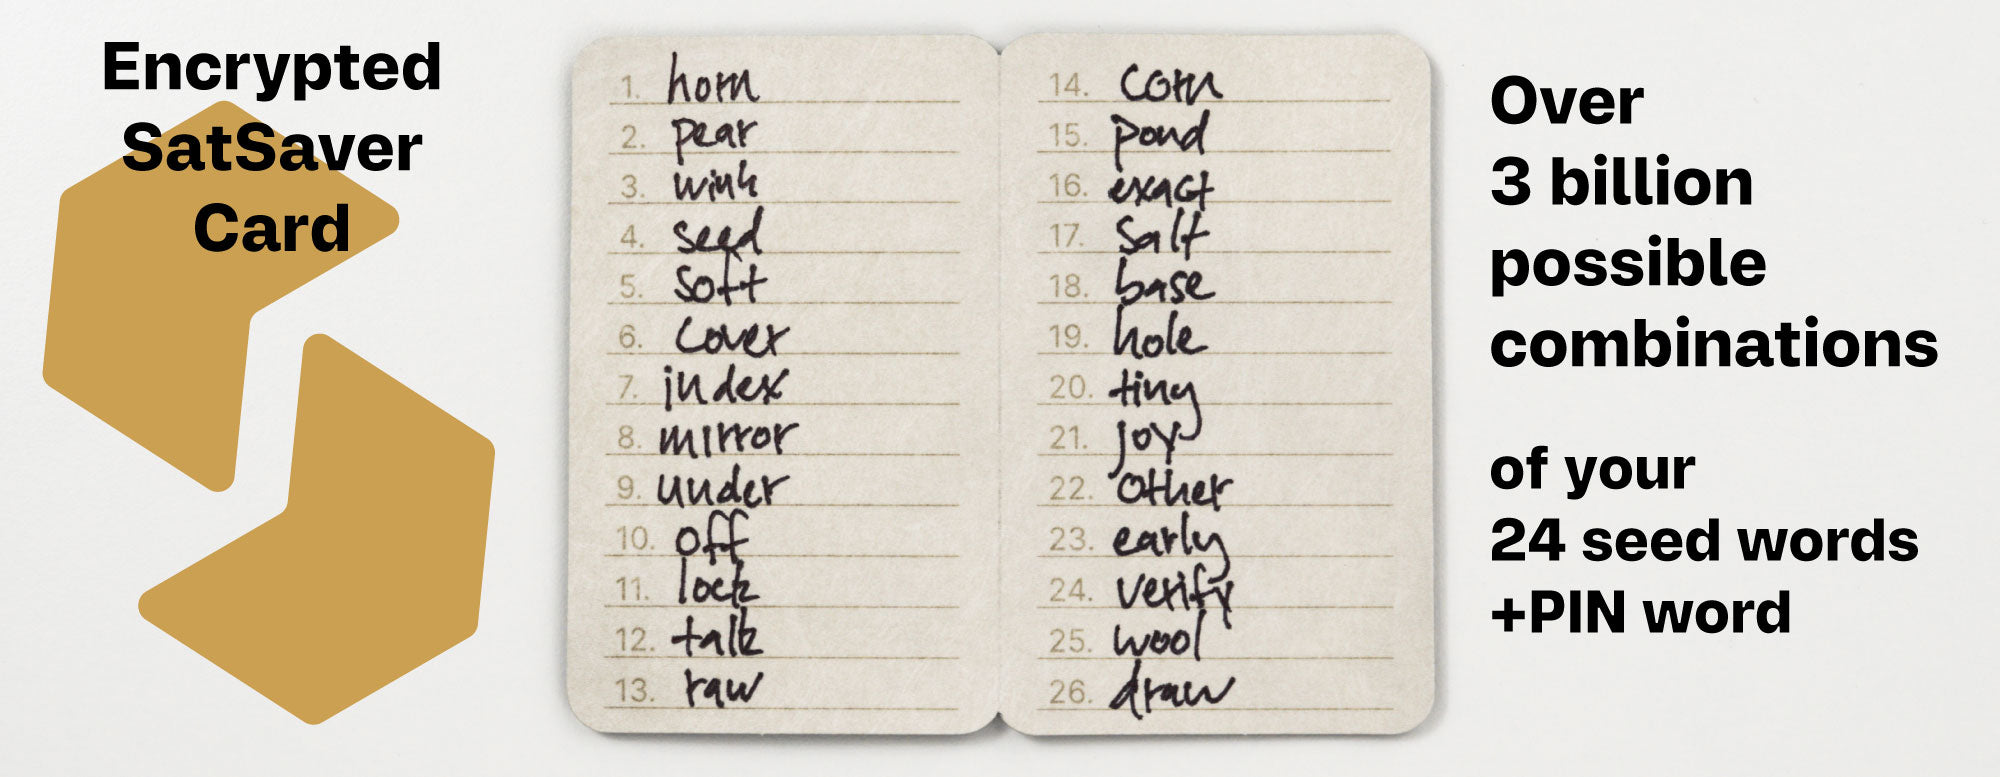 Encrypted
SatSaver
Card
1. horn
2. pear
3. wink
4. seed
5. soft
6. cover
7. index
8. mirror
9. under
10. off
11. lock
12. talk
13. raw
14. corn
15. pond
16. exact
17. salt
18. base
19. hole
20. tiny
21. joy
22. other
23. early
24. verify
25. wool
26. draw
Over
3 billion
possible
combinations
of your
24 seed words
+PIN word